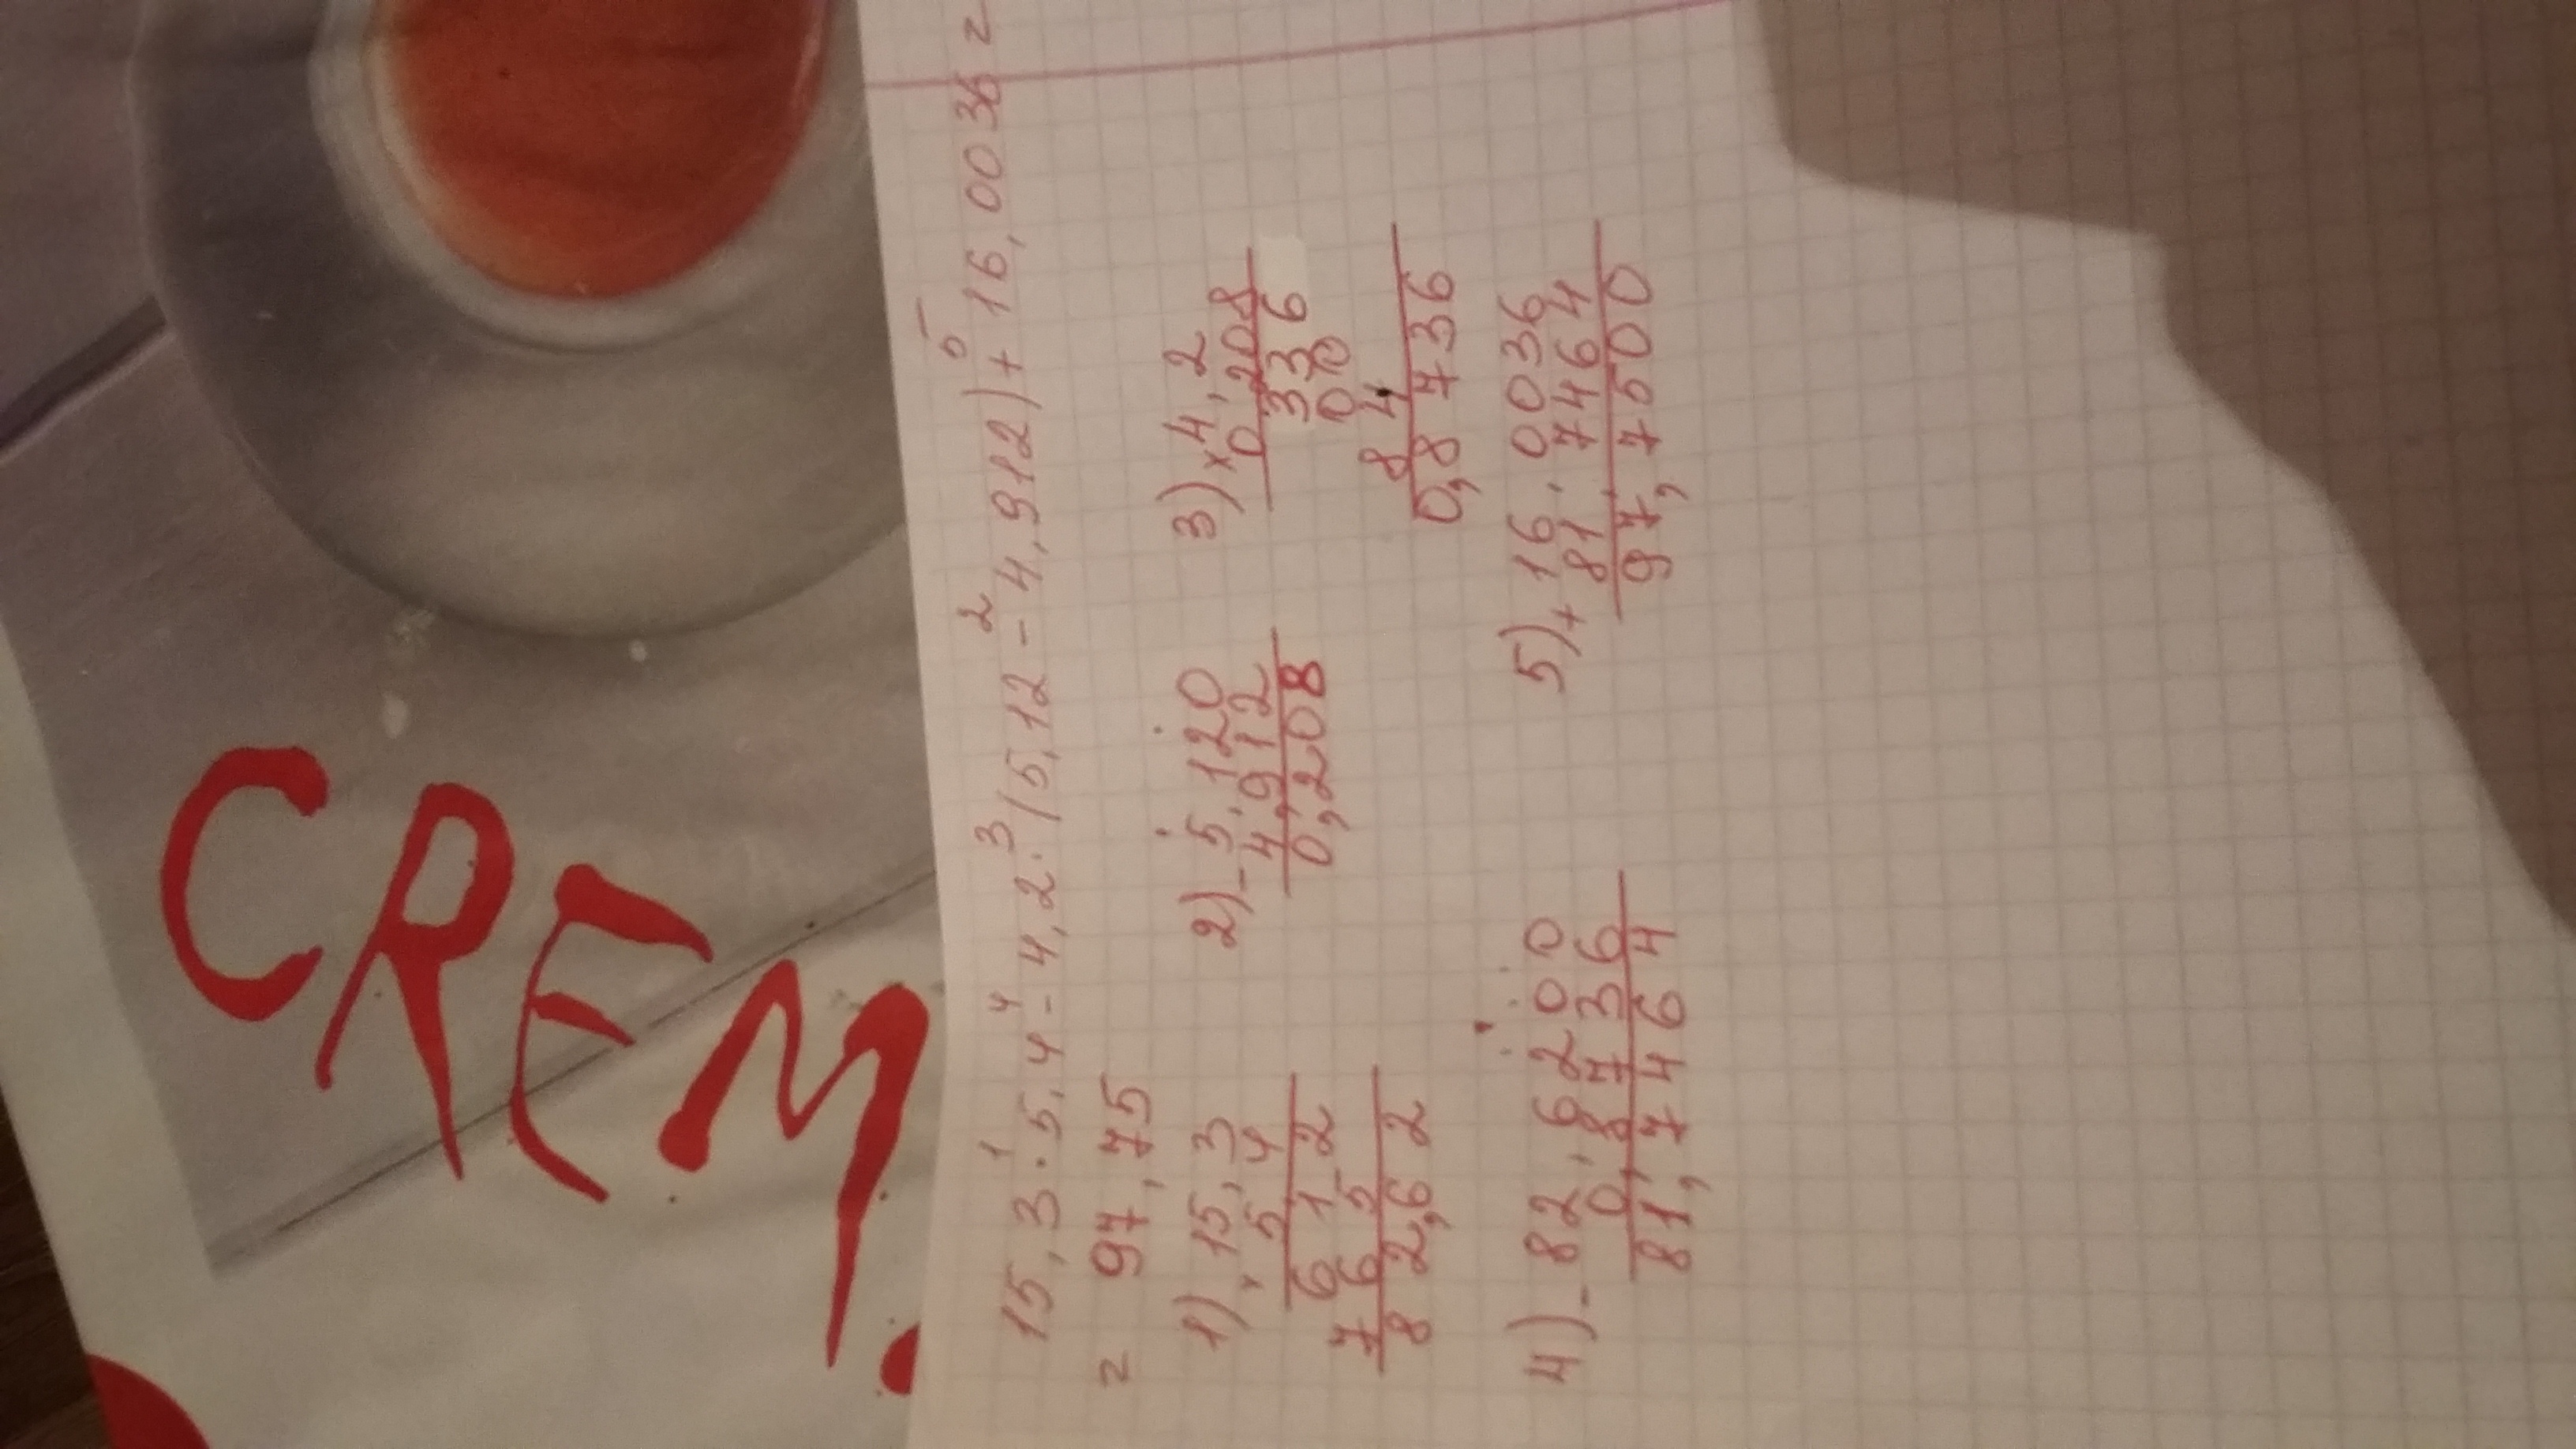 CREM.
15,3 · 5,4 - 4,2 · (5,12 - 4,912) + 16,0036 =
1 4 3 2 5
= 97,75
1) × 15,3
5,4
612
765
82,62
2) - 5,120
4,912
0,208
3) × 4,2
0,208
336
00
84
0,8736
4) - 82,6200
0,8736
81,7464
5) + 16,0036
81,7464
97,7500